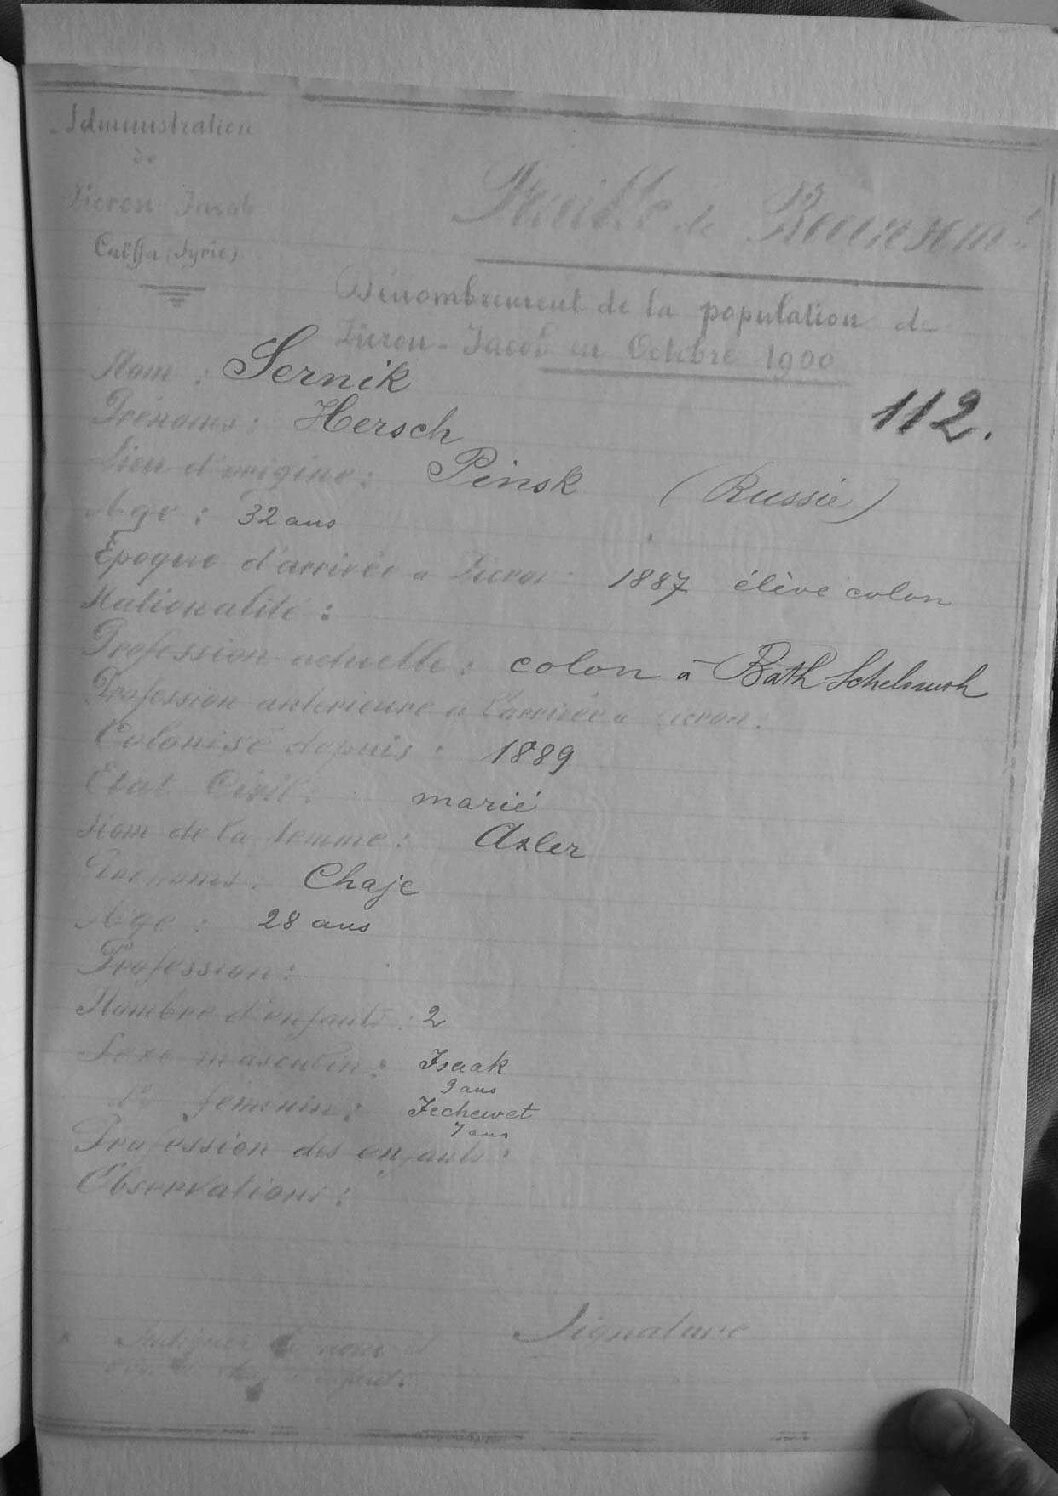 Administration
de
Zicron Jacob
Caïffa (Syrie)
Feuille de Recensemt
Dénombrement de la population de
Zicron-Jacob en Octobre 1900
112.
Nom : Sernik
Prénoms : Hersch
Lieu d'origine : Pinsk (Russie)
Age : 32 ans
Epoque d'arrivée a Zicron 1887 élève colon
Nationalité :
Profession actuelle : colon à Bath Schelmush
Profession anterieure a l'arrivée a Zicron :
Colonisé depuis : 1889
Etat Civil : marié
Nom de la femme : Axler
Prénoms : Chaje
Age : 28 ans
Profession :
Nombre d'enfants : 2
Sexe masculin : Isaak
9 ans
do féminin : Jechewet
7 ans
Profession des enfants :
Observations :
Signature
Indiquer le nom et